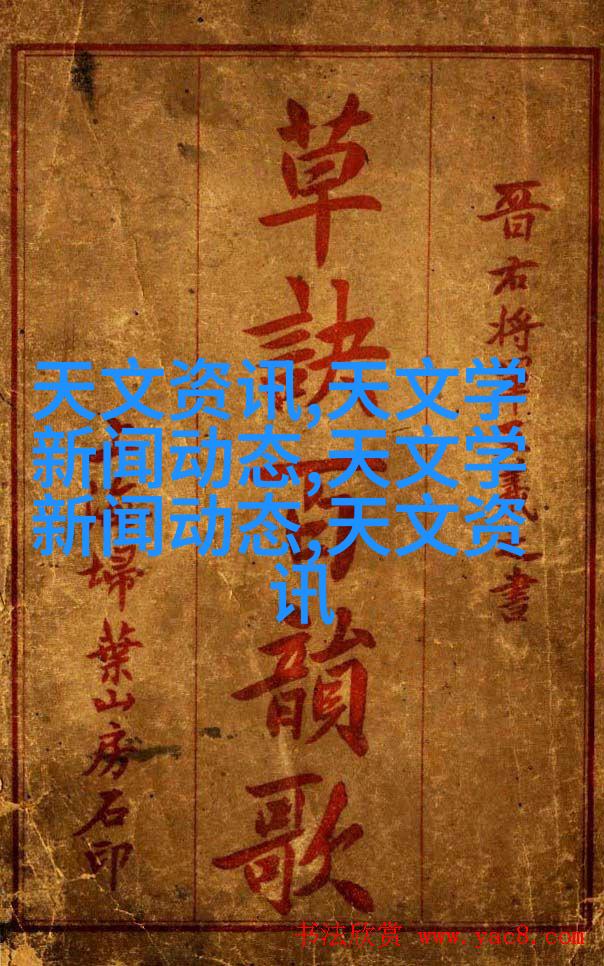 晋右将
書
草訣百韻歌
掃葉山房石印
天文资讯,天文学
新闻动态,天文学
新闻动态,天文资
讯
书法欣赏 www.yac8.com